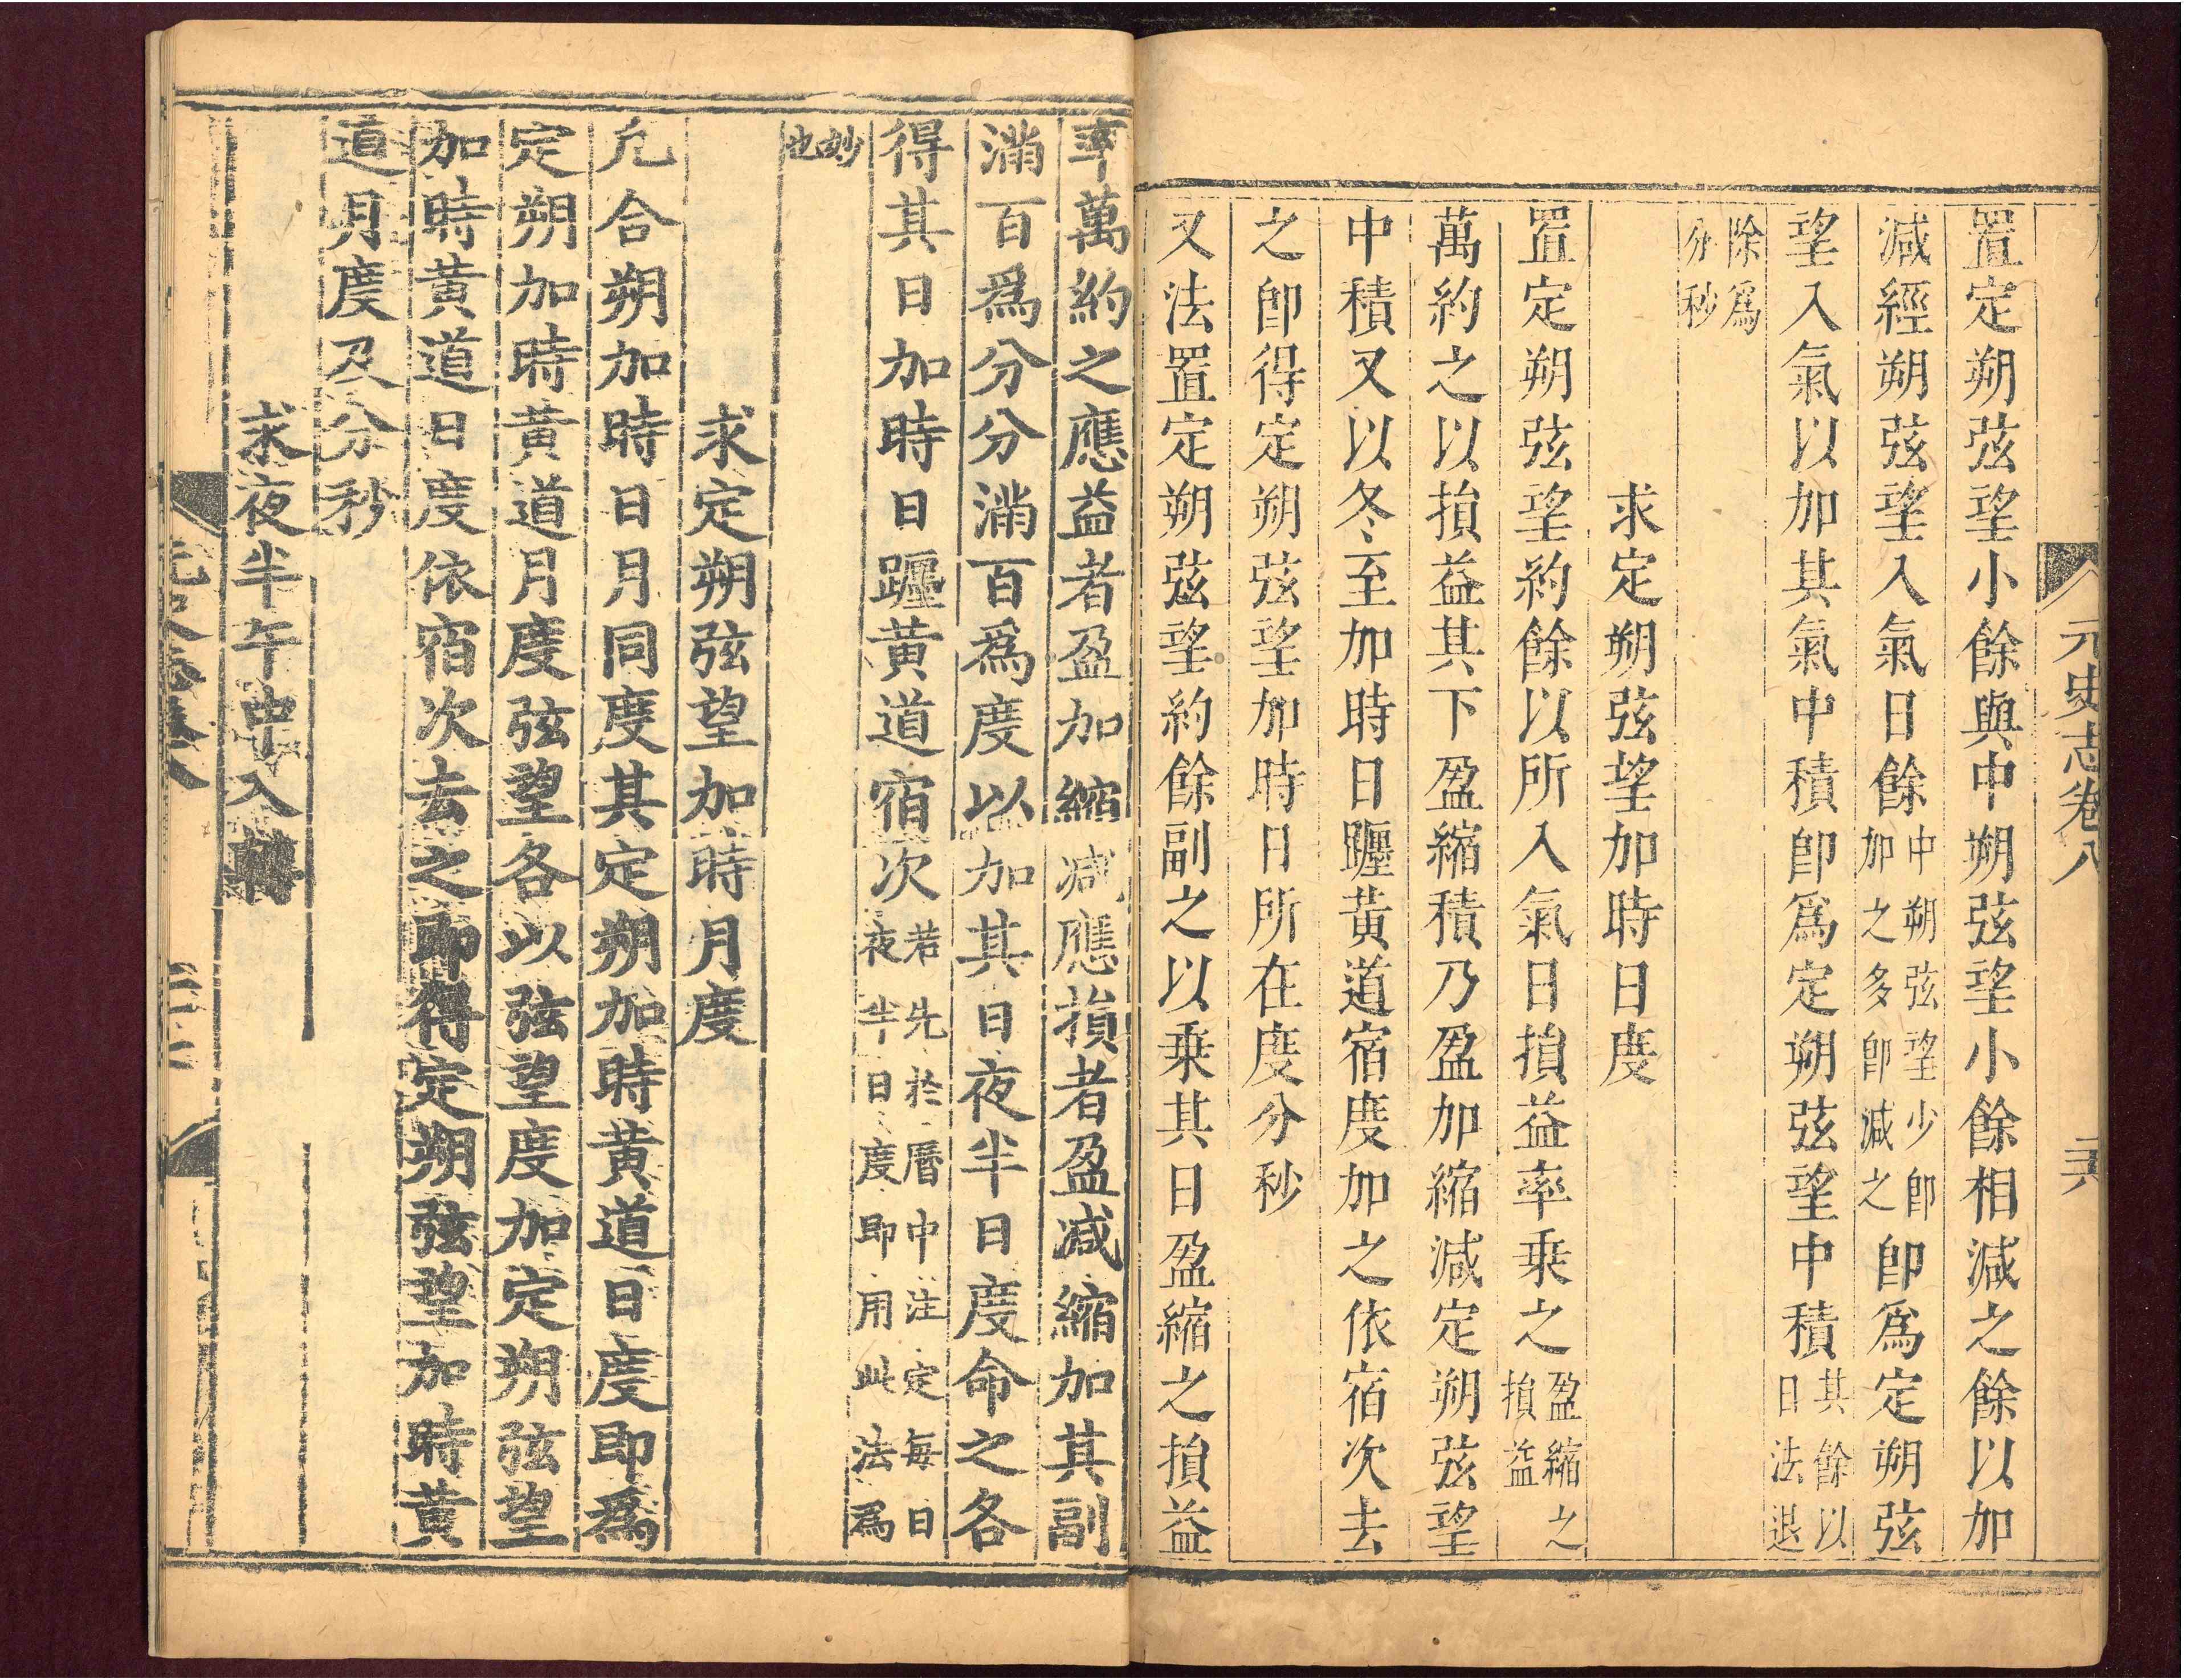 元史志卷八
二六
置定朔弦望小餘與中朔弦望小餘相減之餘以加
減經朔弦望入氣日餘中朔弦望少卽加之多卽減之卽爲定朔弦
望入氣以加其氣中積卽爲定朔弦望中積其餘以日法退
除爲分秒
求定朔弦望加時日度
置定朔弦望約餘以所入氣日損益率乗之盈縮之損益
萬約之以損益其下盈縮積乃盈加縮減定朔弦望
中積又以冬至加時日躔黃道宿度加之依宿次去
之卽得定朔弦望加時日所在度分秒
又法置定朔弦望約餘副之以乗其日盈縮之損益
率萬約之應益者盈加縮减應損者盈减縮加其副
滿百爲分分滿百爲度以加其日夜半日度命之各
得其日加時日躔黃道宿次若先於曆中注定每日夜半日度即用此法爲
妙也
求定朔弦望加時月度
凡合朔加時日月同度其定朔加時黃道日度即爲
定朔加時黃道月度弦望各以弦望度加定朔弦望
加時黃道日度依宿次去之即得定朔弦望加時黃
道月度及分秒
求夜半午中入轉